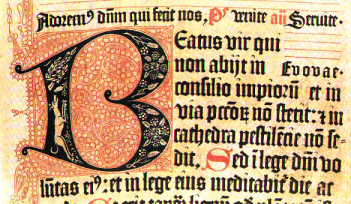 Adorem⁹ dūm qui fecit nos, Ps Venite aii Seruite.
Beatus vir qui
non abijt in Evovae.
consilio impiorū et in
via pccōꝝ nō stetit: ⁊ in
cathedra pestilētie nō se⸗
dit, Sed ī lege dūi vo
lūtas ei⁹: et in lege eius meditabit̄ die ac